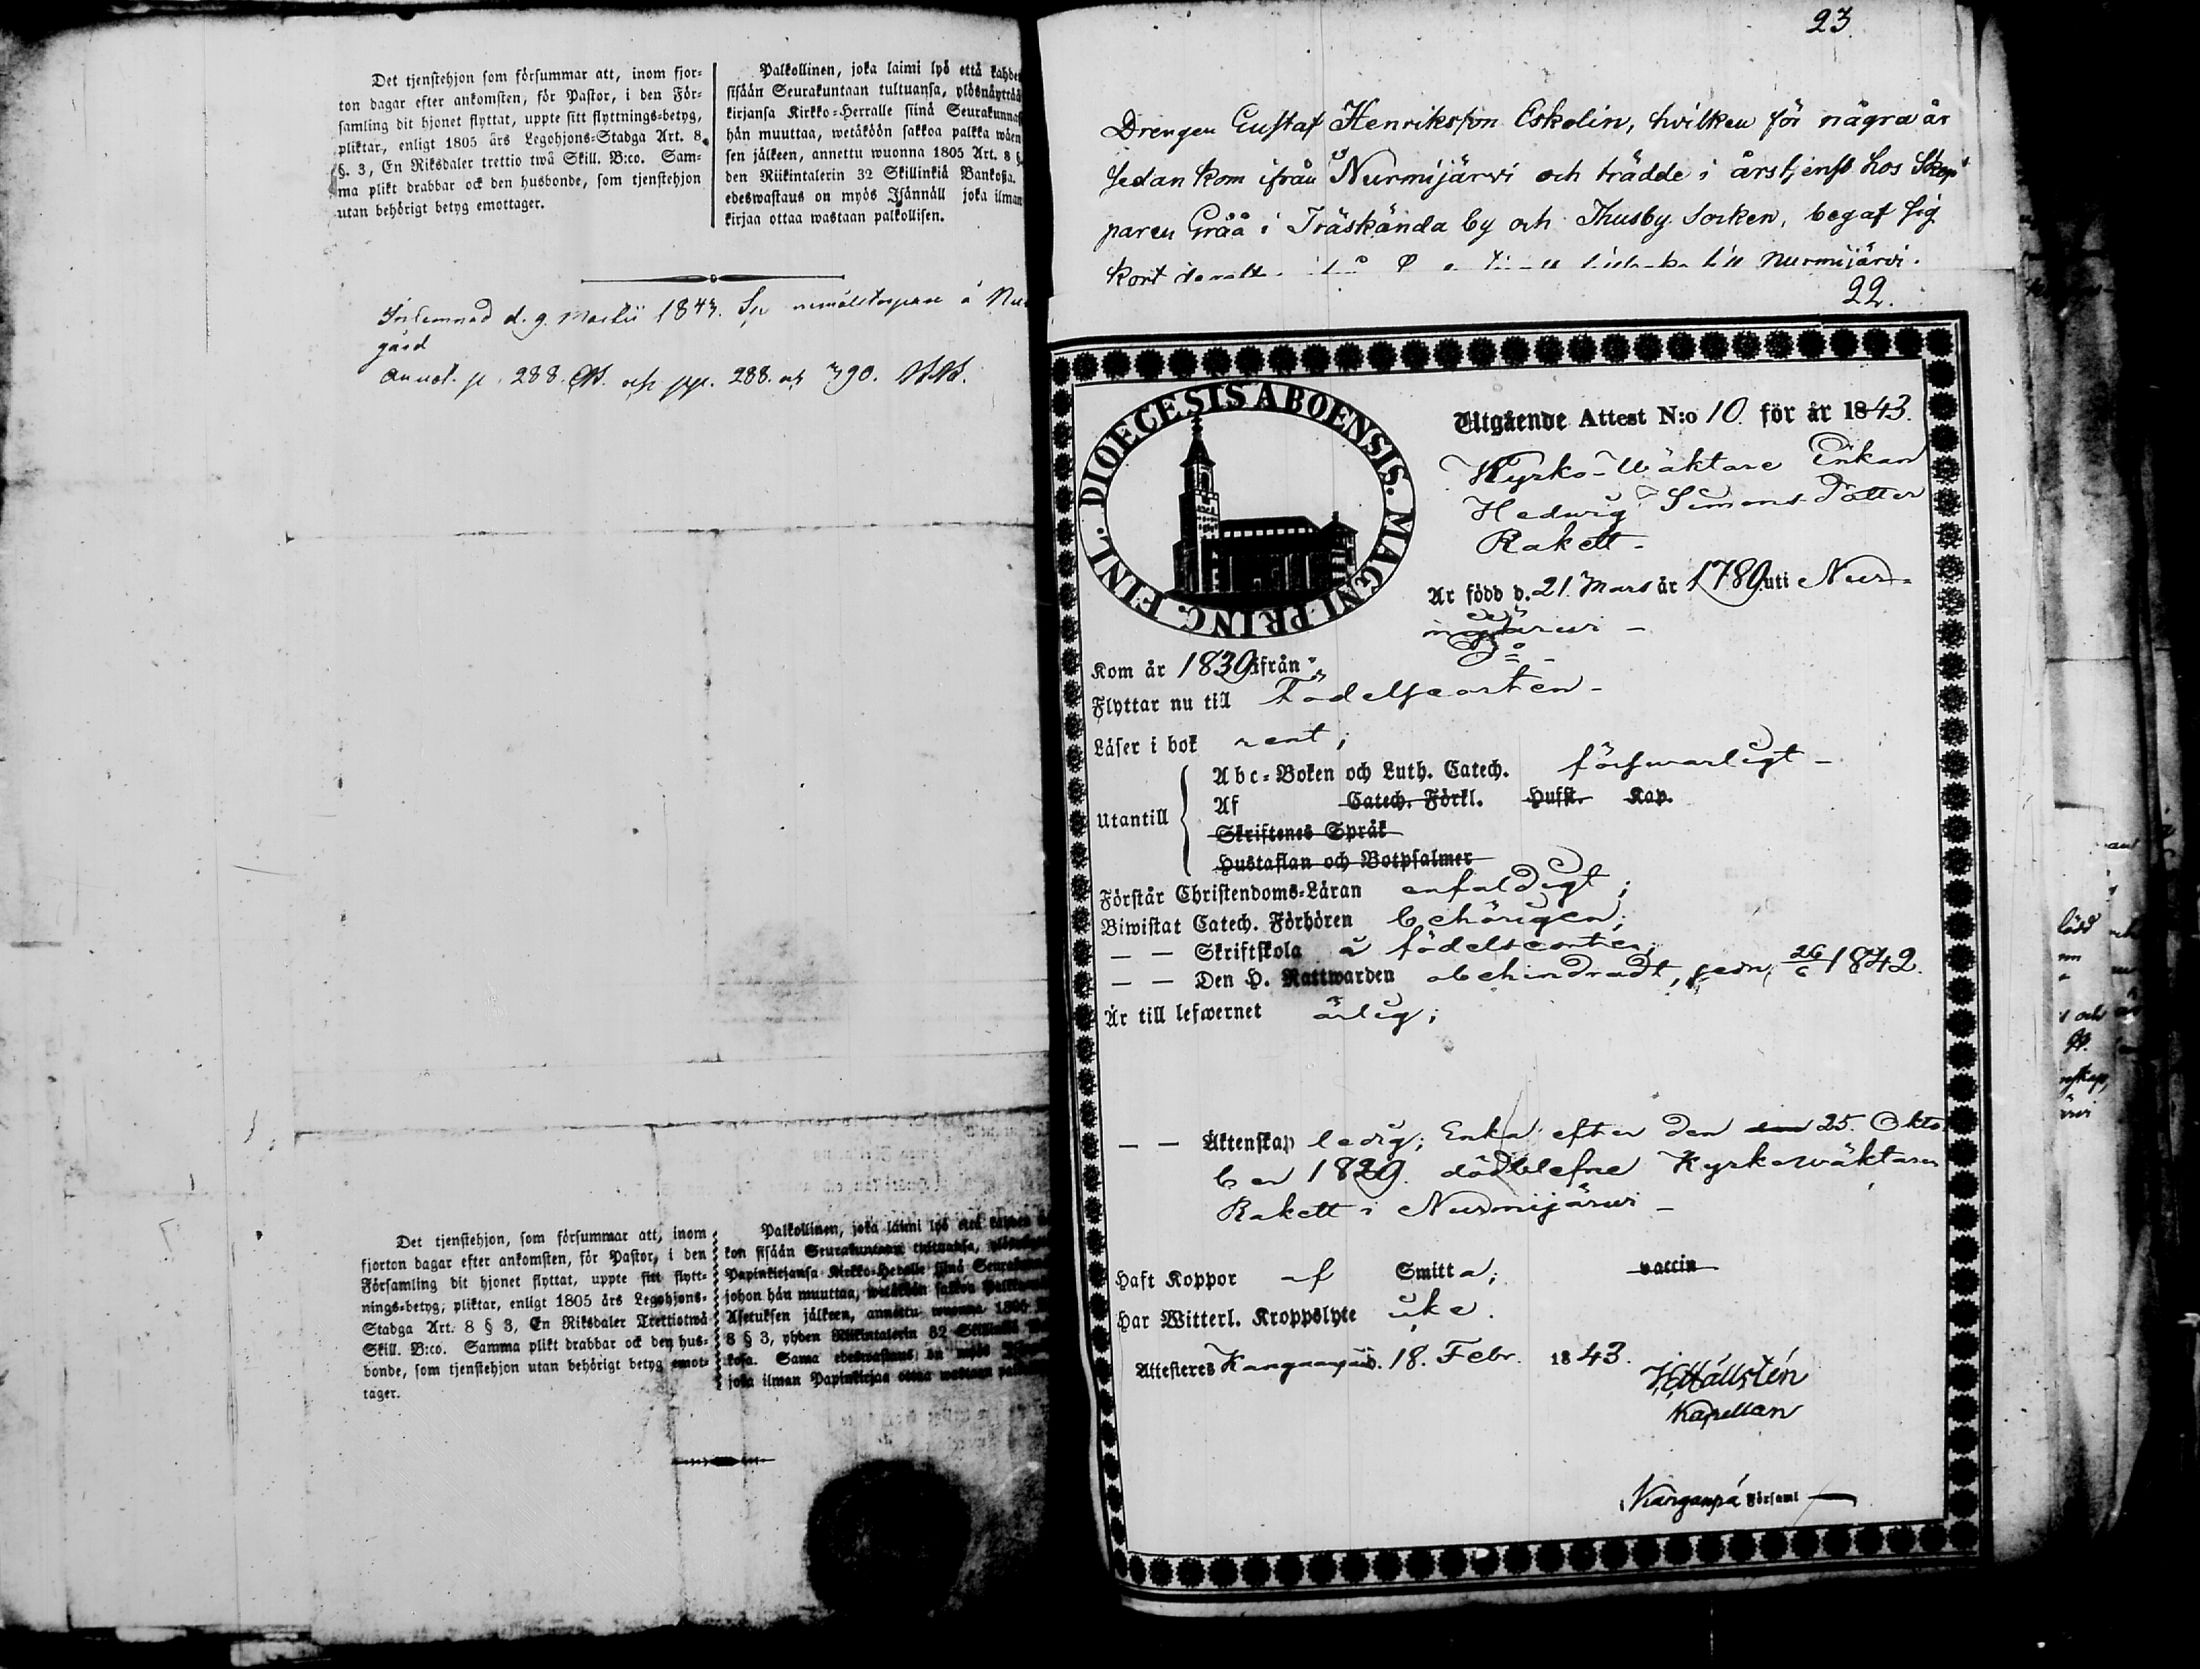 Det tjenstehjon som försummar att, inom fjor-
ton dagar efter ankomsten, för Pastor, i den För-
samling dit hjonet flyttat, uppte sitt flyttnings-betyg,
pliktar, enligt 1805 års Legohjons-Stadga Art. 8.
§. 3, En Riksdaler trettio twå Skill. B:co. Sam-
ma plikt drabbar ock den husbonde, som tjenstehjon
utan behörigt betyg emottager.
Palkollinen, joka laimi lyö että kahden
sisään Seurakuntaan tultuansa, ylösnäyttää
kirjansa Kirkko-Herralle siinä Seurakunnas
hän muuttaa, wetäköön sakkoa palkka wäen
sen jälkeen, annettu wuonna 1805 Art. 8 §
den Riikintalerin 32 Skillinkiä Bankoßa.
edeswastaus on myös Isännäll joka ilman
kirjaa ottaa wastaan palkollisen.
Inlemnad d. 9. Martii 1843.
gård
Annot. p. 288. och pp. 288. och 390.
Det tjenstehjon, som försummar att, inom
fjorton dagar efter ankomsten, för Pastor, i den
Församling dit hjonet flyttat, uppte sitt flytt-
nings-betyg, pliktar, enligt 1805 års Legohjons-
Stadga Art. 8 § 3, En Riksdaler Trettiotwå
Skill. B:co. Samma plikt drabbar ock den hus-
bonde, som tjenstehjon utan behörigt betyg emot-
tager.
Palkollinen, joka laimi lyö että kahden
kon sisään Seurakuntaan tultuansa,
Papinkirjansa Kirkko-Herralle siinä
johon hän muuttaa, wetäköön sakkoa
Asetuksen jälkeen, annettu wuonna 1805
8 § 3, yhden Riikintalerin 32
kosa. Sama edeswastaus on myös
joka ilman Papinkirjaa ottaa wastaan
23.
Drengen Gustaf Henriksson Eskolin, hvilken för några år
sedan kom ifrån Nurmijärvi och trädde i årstjenst hos Skep-
paren Gråå i Träskända by och Thusby Socken, begaf sig
kort till Nurmijärvi.
22.
DIOECESIS ABOENSIS. MAGNI PRINC. FINL.
Utgående Attest N:o 10. för år 1843.
Kyrko-Wäktare Enkan
Hedwig Simons Dotter
Rakett -
Är född d. 21. Mars år 1789 uti Nur-
mijärwi -
Kom år 1830 ifrån D:o -
Flyttar nu till Födelseorten -
Läser i bok rent;
Utantill
Abc-Boken och Luth. Catech. förswarligt -
Af Catech. Förkl. Hufst. Kap.
Skriftenes Språk
Hustaflan och Botpsalmer
Förstår Christendoms-Läran enfaldigt;
Biwistat Catech. Förhören behörigen;
— — Skriftskola å födelseorten;
— — Den H. Nattwarden obehindradt, sedn. 26/6 1842.
Är till lefwernet ärlig;
— — Äktenskap ledig; Enka efter den 25. Okto-
ber 1829. dödblefne Kyrkowäktaren
Rakett i Nurmijärwi -
Haft Koppor af Smitta; vaccin
Har Witterl. Kroppslyte icke.
Attesteres Kangaspää d. 18. Febr. 1843.
Hällstén
Kapellan
Församl